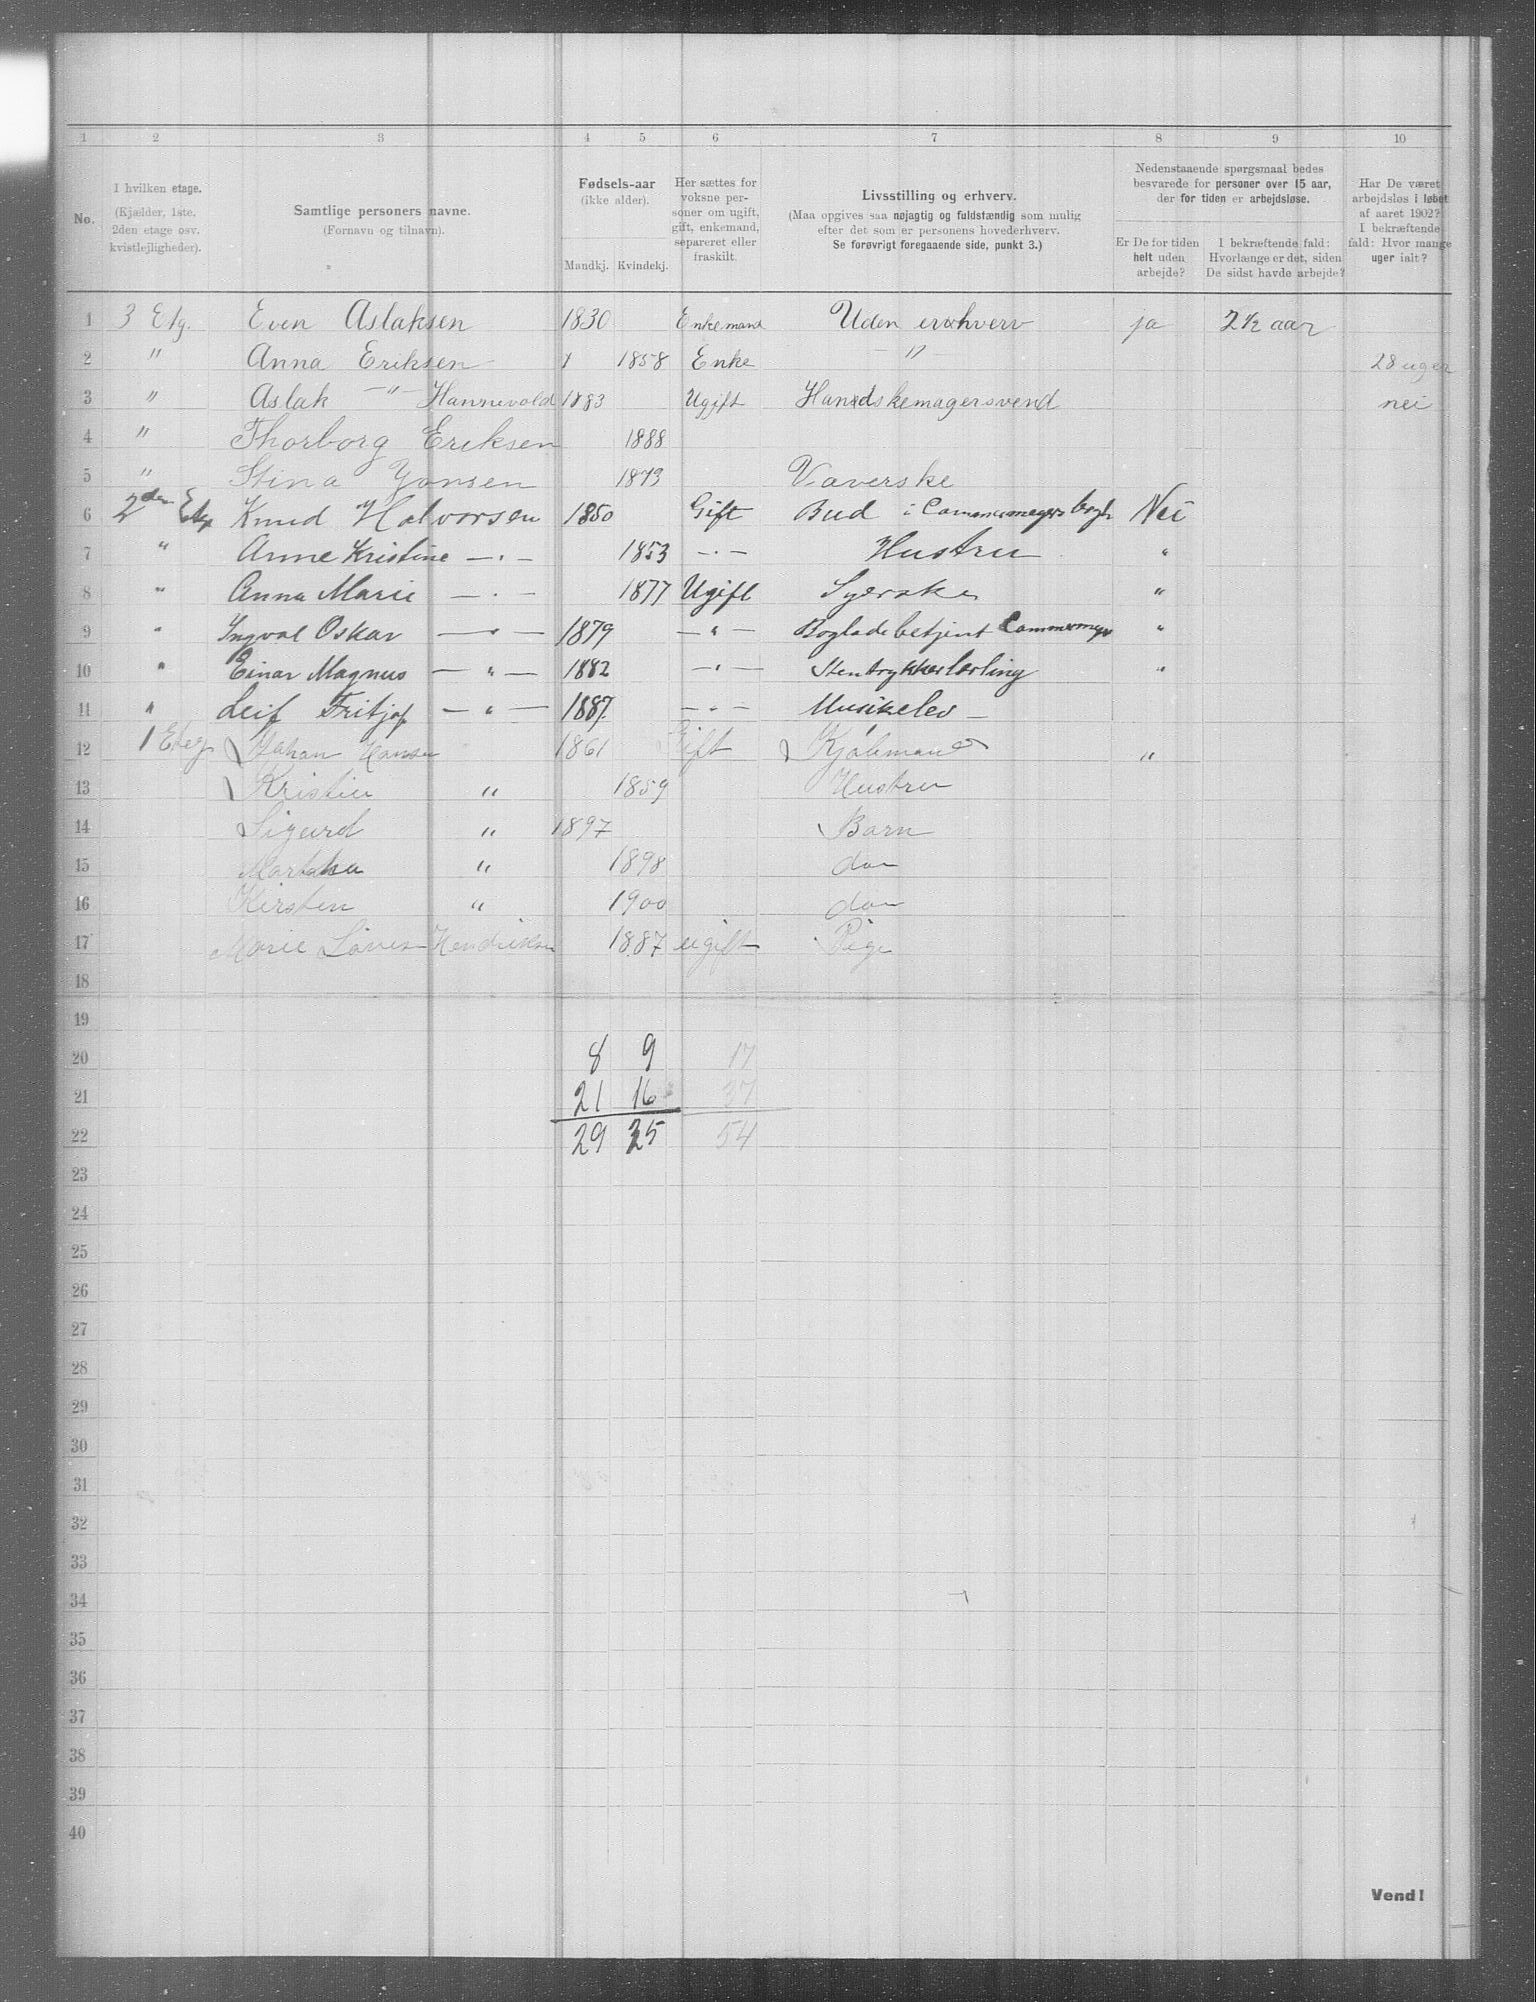 1 2 3 4 5 6 7 8 9 10
No.
I hvilken etage.
(Kjælder, 1ste.
2den etage osv.
kvistlejligheder).
Samtlige personers navne.
(Fornavn og tilnavn).
Fødsels-aar
(ikke alder).
Mandkj. Kvindekj.
Her sættes for
voksne per-
soner om ugift,
gift, enkemand,
separeret eller
fraskilt.
Livsstilling og erhverv.
(Maa opgives saa nøjagtig og fuldstændig som mulig
efter det som er personens hovederhverv.
Se forøvrigt foregaaende side, punkt 3.)
Nedenstaaende spørgsmaal bedes
besvarede for personer over 15 aar,
der for tiden er arbejdsløse.
Er De for tiden
helt uden
arbejde?
I bekræftende fald:
Hvorlænge er det, siden
De sidst havde arbejde?
Har De været
arbejdsløs i løbet
af aaret 1902?
I bekræftende
fald: Hvor mange
uger ialt?
1 3 Etg. Even Aslaksen 1830 Enkemand Uden erhverv ja 2 1/2 aar
2 " Anna Eriksen 1858 Enke — " — 28 uger
3 " Aslak — " — Hannevold 1883 Ugift Handskemagersvend nei
4 " Thorborg Eriksen 1888
5 " Stina Jonsen 1873 Væverske
6 2den Etg Knud Halvorsen 1850 Gift Bud i Cammermeyers bogh Nei
7 " Anne Kristine — " — 1853 — " — Hustru "
8 " Anna Marie — " — 1877 Ugift Syerske "
9 " Ingval Oskar — " — 1879 — " — Bogladebetjent Cammermeyer "
10 " Einar Magnus — " — 1882 — " — Stentrykkerlærling "
11 " Leif Fritjof — " — 1887. — " — Musikelev —
12 1 Etag Johan Hansen 1861 Gift Kjøbmand "
13 Kristin " 1859 Hustru
14 Sigurd " 1897 Barn
15 Martha " 1898 do
16 Kirsten " 1900 do
17 Marie Hendriksen 1887 ugift Pige
18
19
20 8 9 17
21 21 16 37
22 29 25 54
23
24
25
26
27
28
29
30
31
32
33
34
35
36
37
38
39
40
Vend!